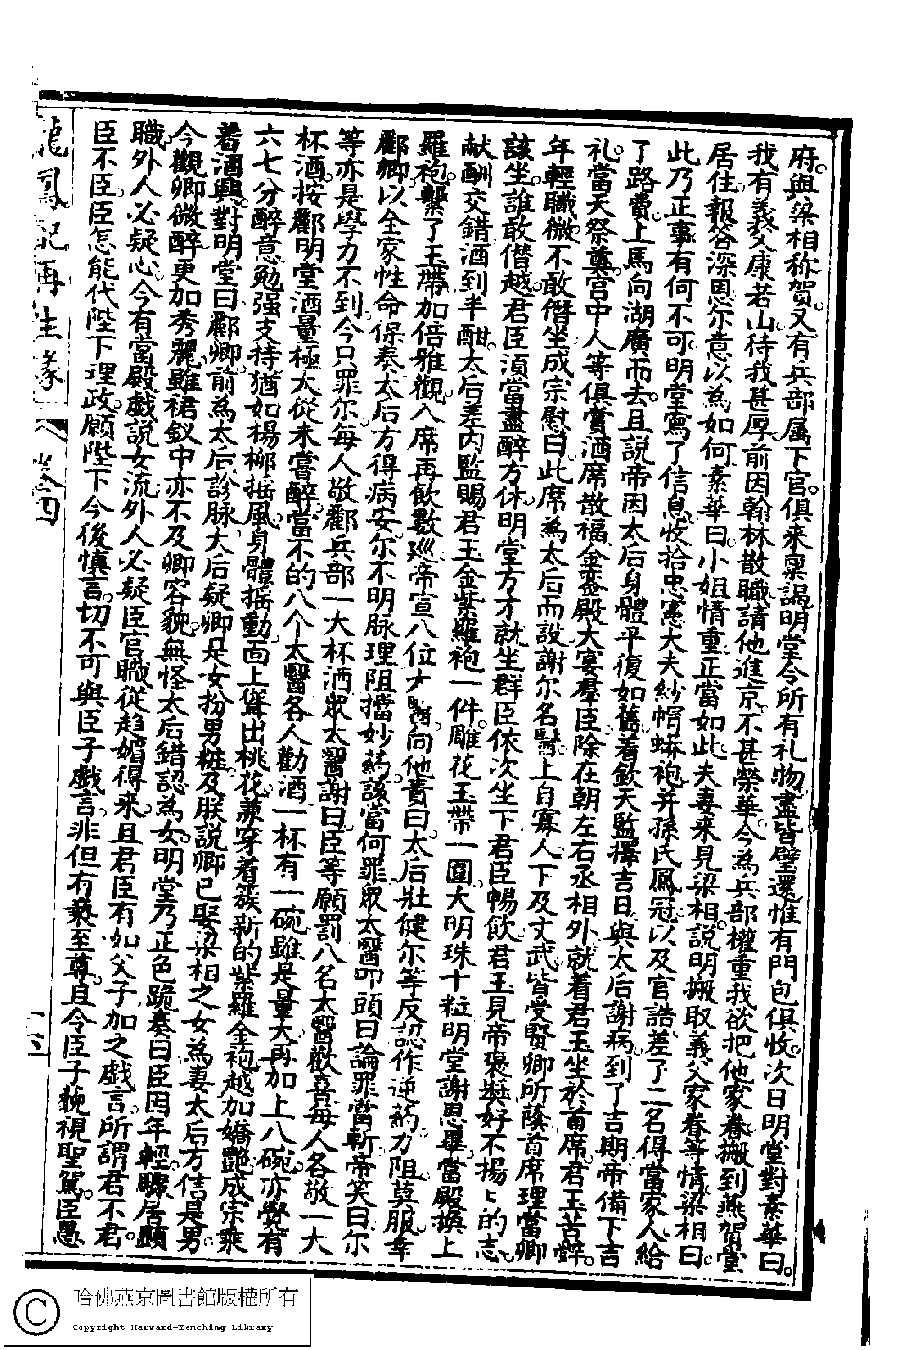 府與梁相称賀又有兵部属下官俱來稟謁明堂今所有礼物盡皆璧還惟有門包俱收次日明堂對素華曰
我有義父康若山待我甚厚前因翰林散職請他進京不甚榮華今為兵部權重我欲把他家眷搬到燕賀堂
居住報答深恩尔意以為如何素華曰小姐情重正當如此夫妻來見梁相說明搬取義父家眷等情梁相曰
此乃正事有何不可明堂寫了信息收拾忠憲大夫紗帽蟒袍并孫氏鳳冠以及官誥差了二名得當家人給
了路費上馬向湖廣而去且說帝因太后身體平復如舊着欽天監擇吉日與太后謝病到了吉期帝備下吉
礼當天祭奠宮中人等俱賞酒席散福金鑾殿大宴羣臣除在朝左右丞相外就着君玉坐於首席君玉苦辞
年輕職微不敢僭坐成宗慰曰此席為太后而設謝尔名醫上自寡人下及文武皆受賢卿所蔭首席理當卿
該坐誰敢僭越君臣須當盡醉方休明堂方才就坐群臣依次坐下君臣暢飲君玉見帝褒奬好不揚揚的志
献酬交錯酒到半酣太后差內監賜君玉金紫羅袍一件雕花玉帶一圍大明珠十粒明堂謝恩畢當殿換上
羅袍繫了玉帶加倍雅觀入席再飲數巡帝宣八位太醫向他責曰太后壯健尔等反認作逆葯力阻莫服幸
酈卿以全家性命保奏太后方得病安尔不明脉理阻擋妙葯該當何罪眾太醫叩頭曰論罪當斬帝笑曰尔
等亦是學力不到今只罪尔每人敬酈兵部一大杯酒眾太醫謝曰臣等願罰八名太醫歡喜每人各敬一大
杯酒按酈明堂酒量極大從來嘗醉當不的八个太醫各人勸酒一杯有一碗雖是量大再加上八碗亦覺有
六七分醉意勉强支持猶如楊柳摇風身體搖動面上聳出桃花兼穿着簇新的紫羅金袍越加嬌艷成宗乘
着酒興對明堂曰酈卿前為太后診脉太后疑卿是女扮男粧及朕說卿已娶梁相之女為妻太后方信是男
今觀卿微醉更加秀麗雖裙釵中亦不及卿容貌無怪太后錯認為女明堂乃正色跪奏曰臣因年輕驟居顯
職外人必疑心今有當殿戲說女流外人必疑臣官職從趋媚得来且君臣有如父子加之戲言所謂君不君
臣不臣臣怎能代陛下理政願陛下今後慎言切不可與臣子戲言非但有褻至尊且令臣子藐視聖駕臣愚
龍鳳記再生緣 卷四
哈佛燕京圖書館版權所有
Copyright Harvard-Yenching Library